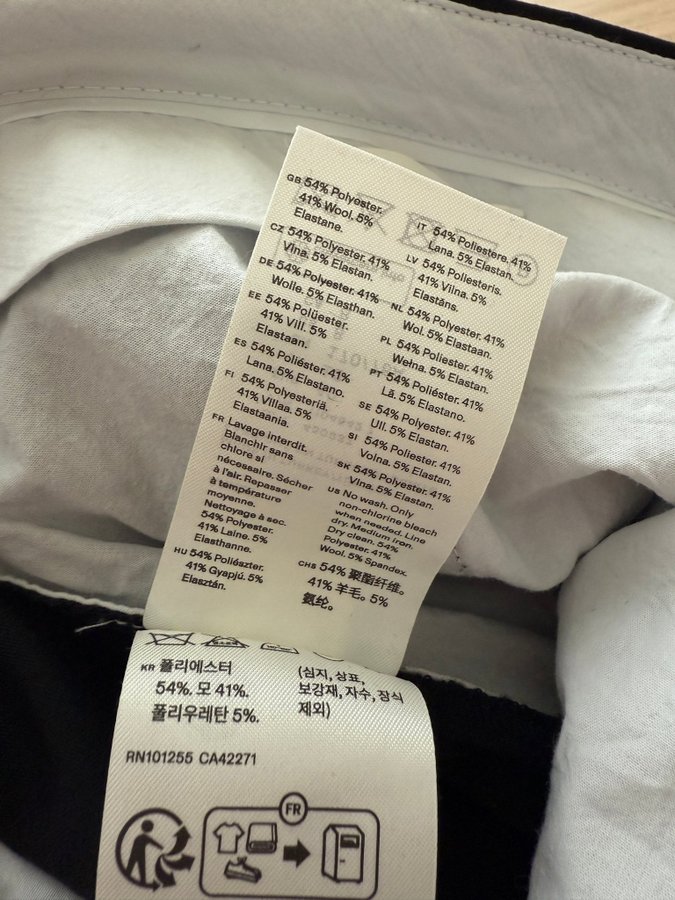 GB 54% Polyester.
41% Wool. 5%
Elastane.
CZ 54% Polyester. 41%
Vlna. 5% Elastan.
DE 54% Polyester. 41%
Wolle. 5% Elasthan.
EE 54% Polüester.
41% Vill. 5%
Elastaan.
ES 54% Poliéster. 41%
Lana. 5% Elastano.
FI 54% Polyesteriä.
41% Villaa. 5%
Elastaania.
FR Lavage interdit.
Blanchir sans
chlore si
nécessaire. Sécher
à l'air. Repasser
à température
moyenne.
Nettoyage à sec.
54% Polyester.
41% Laine. 5%
Elasthanne.
HU 54% Poliészter.
41% Gyapjú. 5%
Elasztán.
IT 54% Poliestere. 41%
Lana. 5% Elastan.
LV 54% Poliesteris.
41% Vilna. 5%
Elastāns.
NL 54% Polyester. 41%
Wol. 5% Elastaan.
PL 54% Poliester. 41%
Wełna. 5% Elastan.
PT 54% Poliéster. 41%
Lã. 5% Elastano.
SE 54% Polyester. 41%
Ull. 5% Elastan.
SI 54% Poliester. 41%
Volna. 5% Elastan.
SK 54% Polyester. 41%
Vlna. 5% Elastan.
US No wash. Only
non-chlorine bleach
when needed. Line
dry. Medium iron.
Dry clean. 54%
Polyester. 41%
Wool. 5% Spandex.
CHS 54% 聚酯纤维。
41% 羊毛。5%
氨纶。
KR 폴리에스터
54%. 모 41%.
폴리우레탄 5%.
(심지, 상표,
보강재, 자수, 장식
제외)
RN101255 CA42271
FR